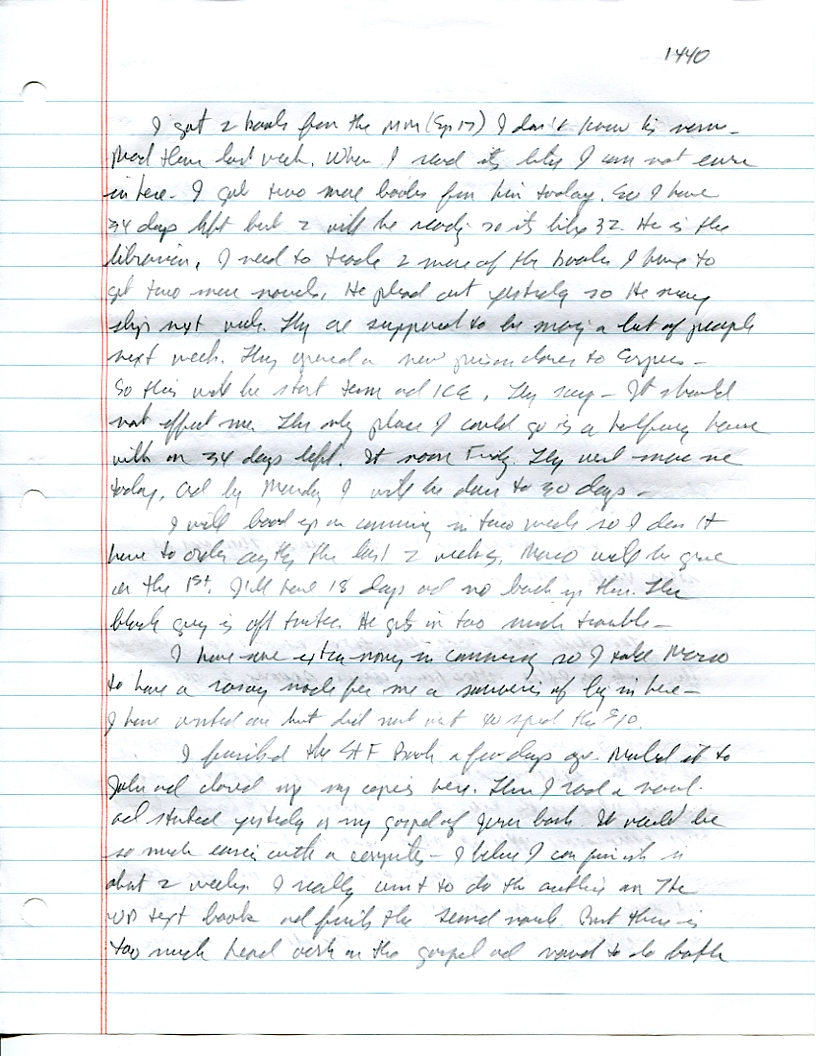 1440
I got 2 books from the man I don't know his name.
Read them last week. When I read its like I am not even
in here. I got two more books from him today. So I have
34 days left but 2 will be ready so its like 32. He is the
librarian, I need to trade 2 more of the books I have to
get two more novels. He plead out yesterday so He may
ship next week. They are supposed to be moving a lot of people
next week. They opened a new prison closer to
So this will be short term and ICE, They say - It should
not effect me. The only place I could go is a halfway house
with on 34 days left. It soon Friday. They wont move me
today, and by Monday I will be down to 30 days -
I will load up on commissary in two weeks so I don't
have to order anything the last 2 weeks. Marco will be gone
on the 1st. I'll have 18 days and no back up then. The
black guy is off He gets in too much trouble -
I have some extra money in commissary so I Marco
to have a rosary made for me a souvenir of being in here -
I have wanted one but did not want to spend the $10.
I finished the Book a few days ago. Mailed it to
Julie and closed up my copies here. Then I read a novel.
and started yesterday on my gospel of book. It would be
so much easier with a computer - I believe I can finish in
about 2 weeks. I really want to do the outline on The
text book and finish the second novel. But there is
too much head work on the gospel and novel to do both